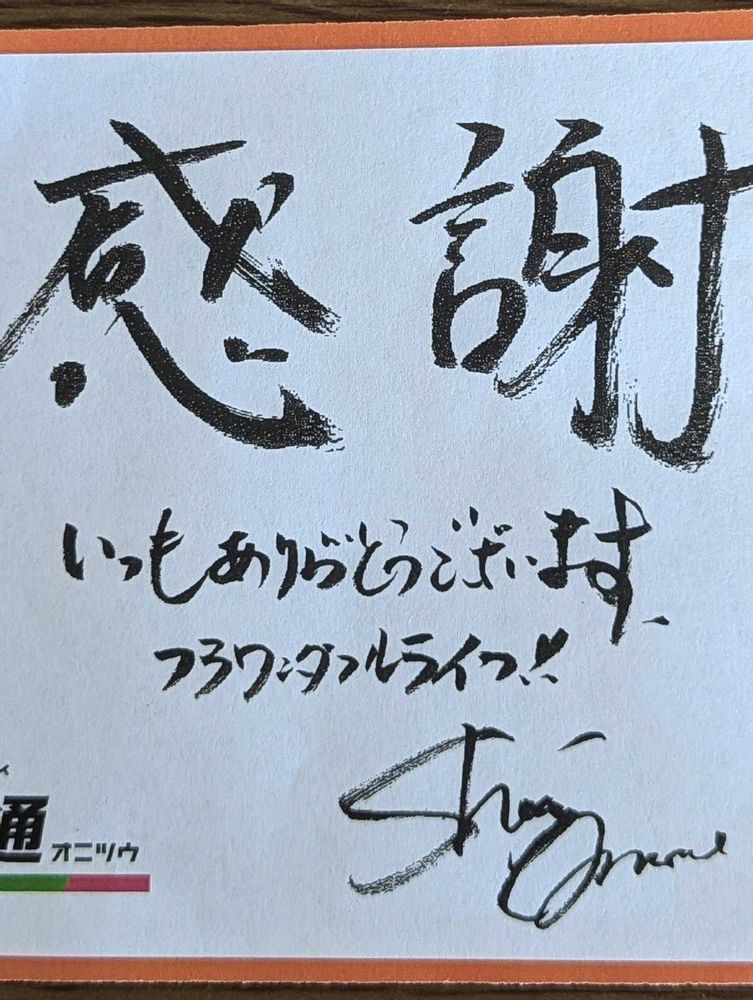 感謝
いつもありがとうございます、
フラワンダフルライフ!!
ィ
通 オニツウ